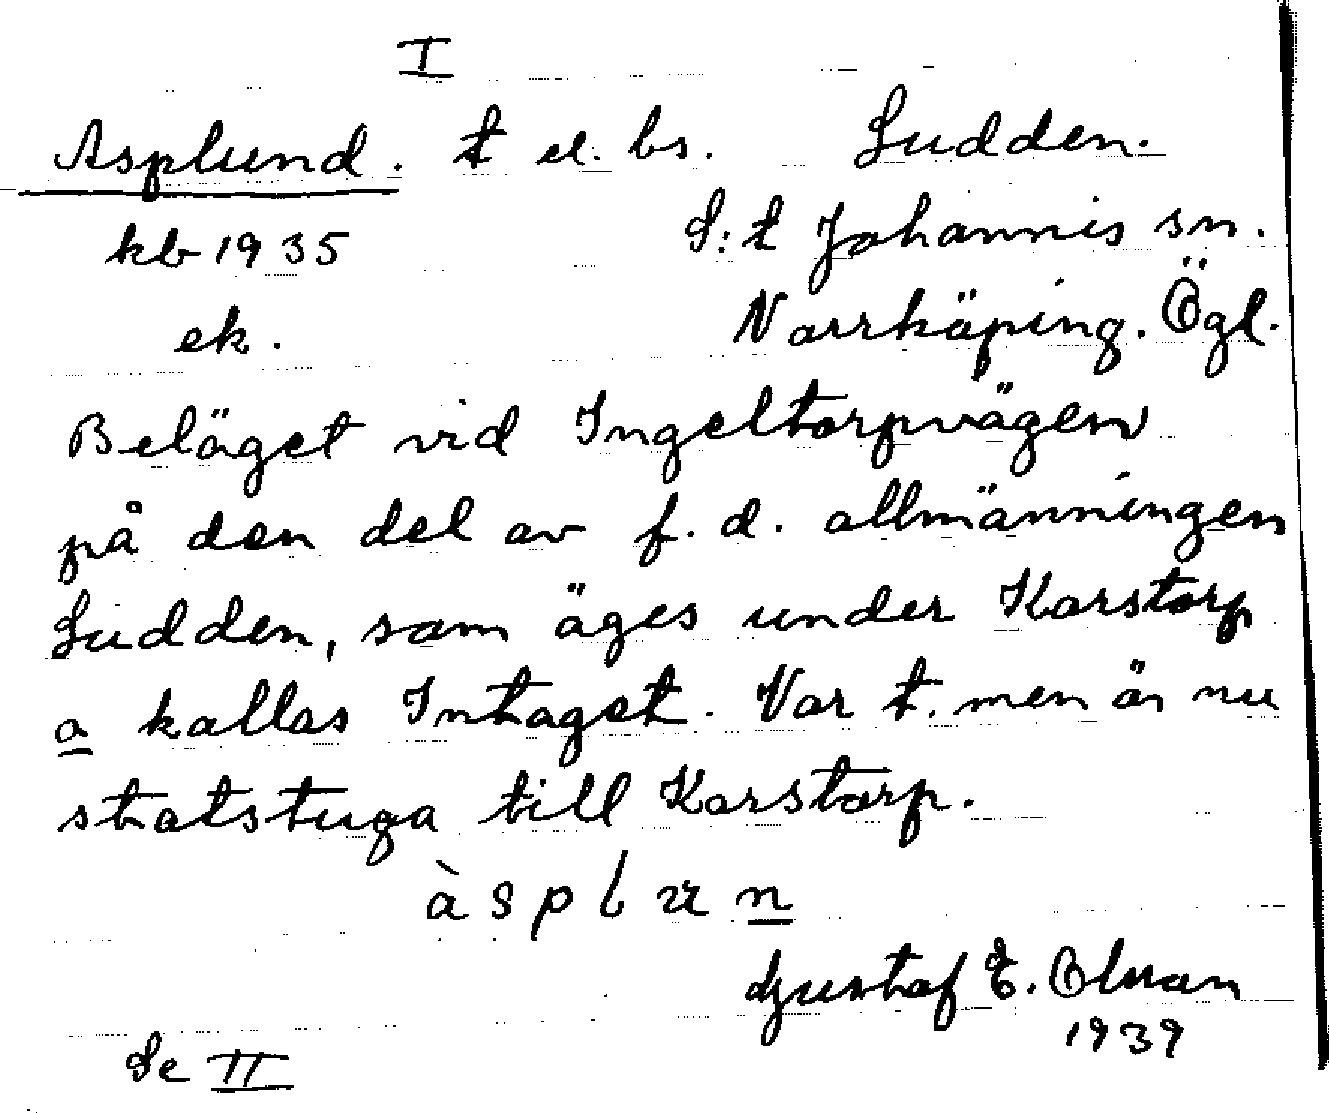 I
Asplund. t el. bs. Sudden.
kb 1935 S:t Johannis sn.
ek. Norrköping. Ögl.
Beläget vid Ingeltorpvägen
på den del av f. d. allmänningen
Sudden, som äges under Korstorp
o kallas Intaget. Var t. men är nu
statstuga till Korstorp.
àsplun
Gustaf E. Olsson
1939
Se II